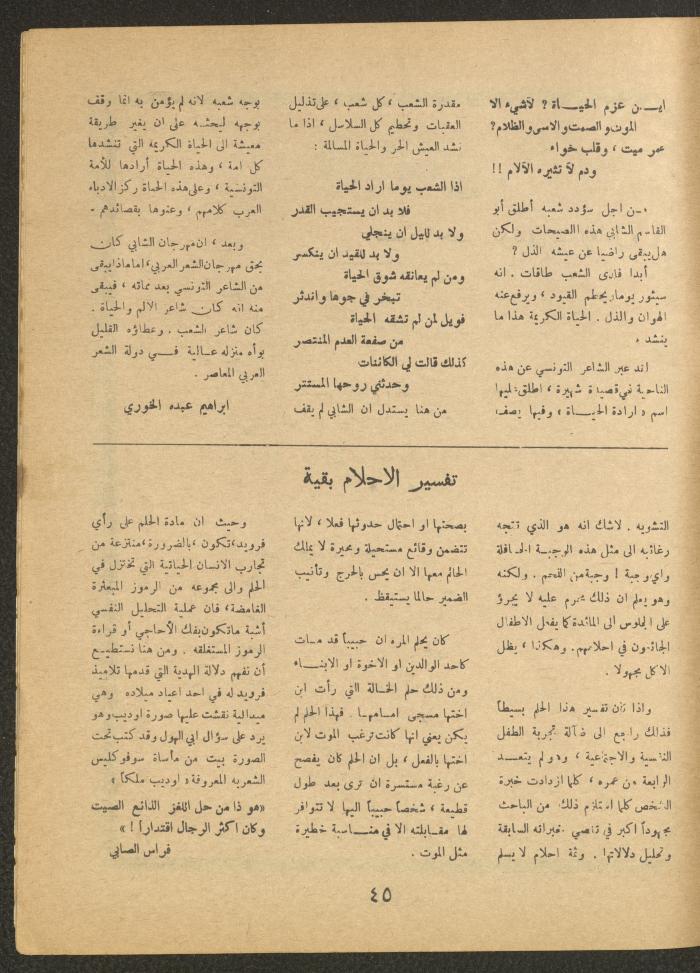 ايـــن عزم الحيـــاة ? لاشيء الا
الموت والصمت والاسى والظلام?
عمر ميت ، وقلب خواء
ودم لا تثيره الآلام !!
مـن اجل سؤدد شعبه أطلق أبو
القاسم الشابي هذه الصيحات ولكن
هل يبقى راضيا عن عيشه الذل ?
أبدا ففي الشعب طاقات . انه
سيثور يوما ويحطم القيود ، ويرفع عنه
الهوان والذل . الحياة الكريمة هذا ما
ينشد .
لقد عبر الشاعر التونسي عن هذه
الناحية في قصيدة شهيرة ، اطلق عليها
اسم « ارادة الحيـــاة » وفيها يصف
مقدرة الشعب ، كل شعب ، على تذليل
العقبات وتحطيم كل السلاسل ، اذا ما
نشد العيش الحر والحياة المسالمة :
اذا الشعب يوما اراد الحياة
فلا بد ان يستجيب القدر
ولا بد لليل ان ينجلي
ولا بد للقيد ان ينكسر
ومن لم يعانقه شوق الحياة
تبخر في جوها واندثر
فويل لمن لم تشقه الحياة
من صفعة العدم المنتصر
كذلك قالت لي الكائنات
وحدثني روحها المستتر
من هنا يستدل ان الشابي لم يقف
بوجه شعبه لانه لم يؤمن به انما وقف
بوجهه ليحثـه على ان يغير طريقة
معيشة الى الحياة الكريمة التي تنشدها
كل امة ، وهذه الحياة أرادها للأمة
التونسية ، وعلى هذه الحياة ركز الادباء
العرب كلامهم ، وعنوها بقصائدهم .
وبعد ، ان مهرجان الشابي كان
بحق مهرجان الشعر العربي، اما ماذا يبقى
من الشاعر التونسي بعد مماته ، فيبقى
منه انه كان شاعر الالم والحياة .
كان شاعر الشعب . وعطاؤه القليل
بوأه منزلة عـالية فـــي دولة الشعر
العربي المعاصر .
ابراهيم عبده الخوري
تفسير الاحلام بقية
التشويه . لاشك انه هو الذي تتجه
رغائبه الى مثل هذه الوجبـة الحـافلة
واي وجبة ! وجبة من اللحم . ولكنه
وهو يعلم ان ذلك محرم عليه لا يجرؤ
على الجلوس الى المائدة كما يفعل الاطفال
الجائعون في احلامهم. وهكذا ، يظل
الاكل مجهولا .
واذا كان تفسير هذا الحلم بسيطاً
فذلك راجع الى ضآلة تجربة الطفل
النفسية والاجتماعية ، وهو لم يتعـــد
الرابعة من عمره ، كلما ازدادت خبرة
الشخص كلما استلزم ذلك من الباحث
مجهوداً اكبر في تقصي خبراته السابقة
وتحليل دلالاتها . وثمة احلام لا يسلم
بصحتها او احتمال حدوثها فعلا ، لانها
تتضمن وقائع مستحيلة ومحيرة لا يملك
الحالم معها الا ان يحس بالحرج وتأنيب
الضمير حالما يستيقظ .
كان يحلم المرء ان حبيباً قد مـات
كاحد الوالدين او الاخوة او الابنـــاء
ومن ذلك حلم الخـالة التي رأت ابن
اختها مسجى امـامهـا . فهذا الحلم لم
يكن يعني انها كانت ترغب الموت لابن
اختها بالفعل ، بل ان الحلم كان يفصح
عن رغبة مستسرة ان ترى بعد طول
قطيعة ، شخصاً حبيباً اليها لا تتوافر
لها مقـابلته الا في منـــاسبة خطيرة
مثل الموت .
وحيث ان مادة الحلم على رأي
فرويد، تكون ، بالضرورة، منتزعة من
تجارب الانسان الحياتية التي تختزل في
الحلم والى مجموعه من الرموز المبعثرة
الغامضة، فان عملية التحليل النفسي
أشبه ما تكون بفك الأحاجي أو قراءة
الرموز المستغلقه . ومن هنا نستطيـــع
أن نفهم دلالة الهدية التي قدمها تلاميذ
فرويد له في احد اعياد ميلاده وهي
ميدالية نقشت عليها صورة اوديب وهو
يرد على سؤال ابي الهول وقد كتب تحت
الصورة بيت من مأساة سوفوكليس
الشعريه المعروفة « اوديب ملكاً »
«هو ذا من حل اللغز الذائع الصيت
وكان اكثر الرجال اقتداراً ! »
فراس الصابي
٤٥